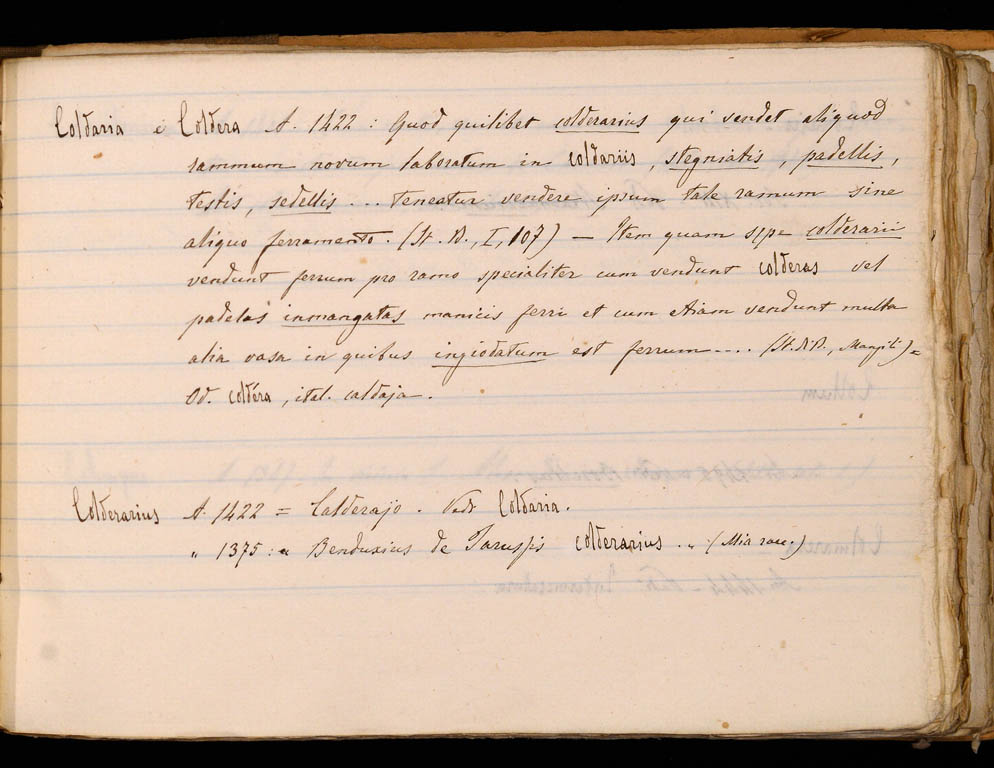 Coldaria e Coldera A. 1422 : Quod quilibet colderarius qui vendet aliquod
rammum novum laboratum in coldariis, stegniatis, padellis,
testis, sedellis ... teneatur vendere ipsum tale ramum sine
aliquo ferramento. (St. B., I, 107) — Item quam sepe colderarii
vendunt ferrum pro ramo specialiter cum vendunt colderas vel
padelas inmangatas manicis ferri et cum etiam vendunt multa
alia vasa in quibus ingiodatum est ferrum .... (St. B., Mangili) =
Od. coldéra, ital. caldaja.
Colderarius A. 1422 = Calderajo. Vedi Coldaria.
„ 1375 : « Benduxius de colderarius „ (Mia racc.)